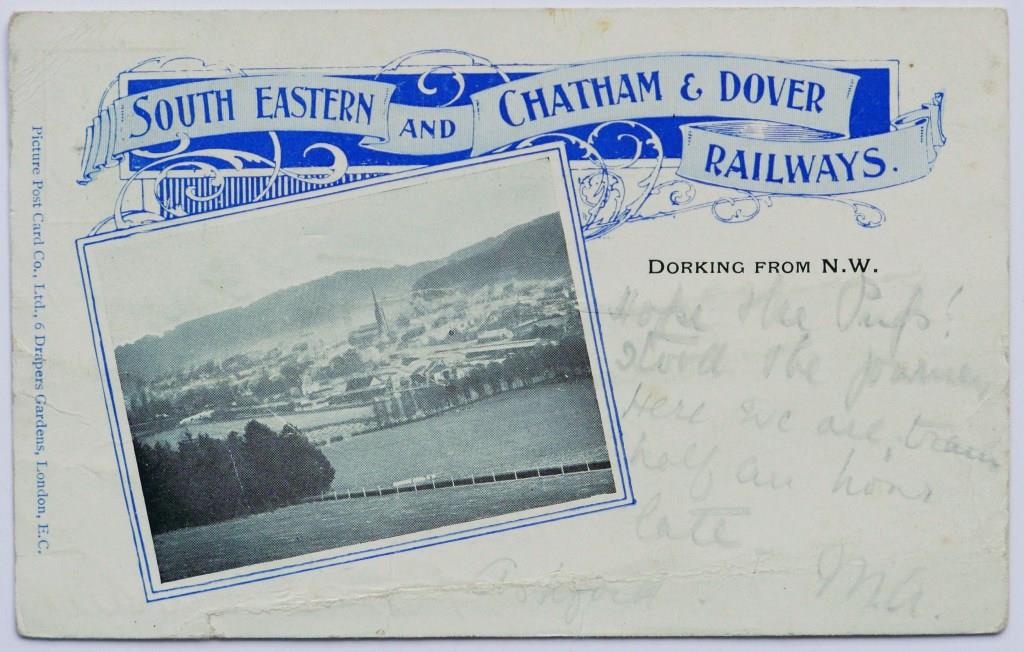 SOUTH EASTERN AND CHATHAM & DOVER
RAILWAYS.
DORKING FROM N.W.
Hope the Pup!
stood the journey
Here we are, train
half an hour
late
Ashford. MA.
Picture Post Card Co., Ltd., 6 Drapers Gardens, London, E.C.